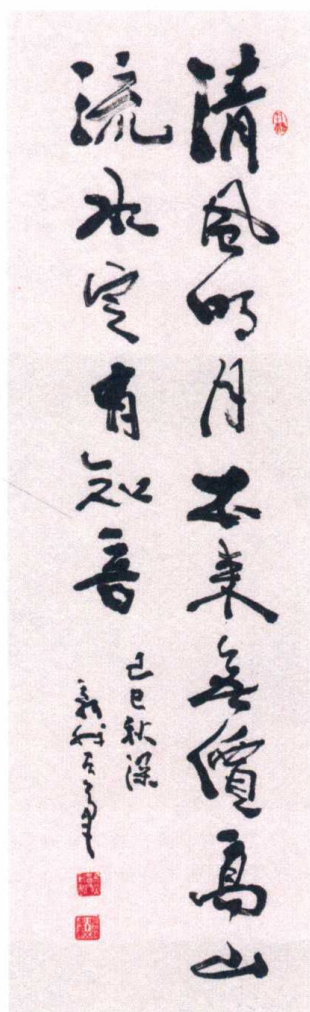 清風明月本来無價高山
流水定有知音
己巳秋深